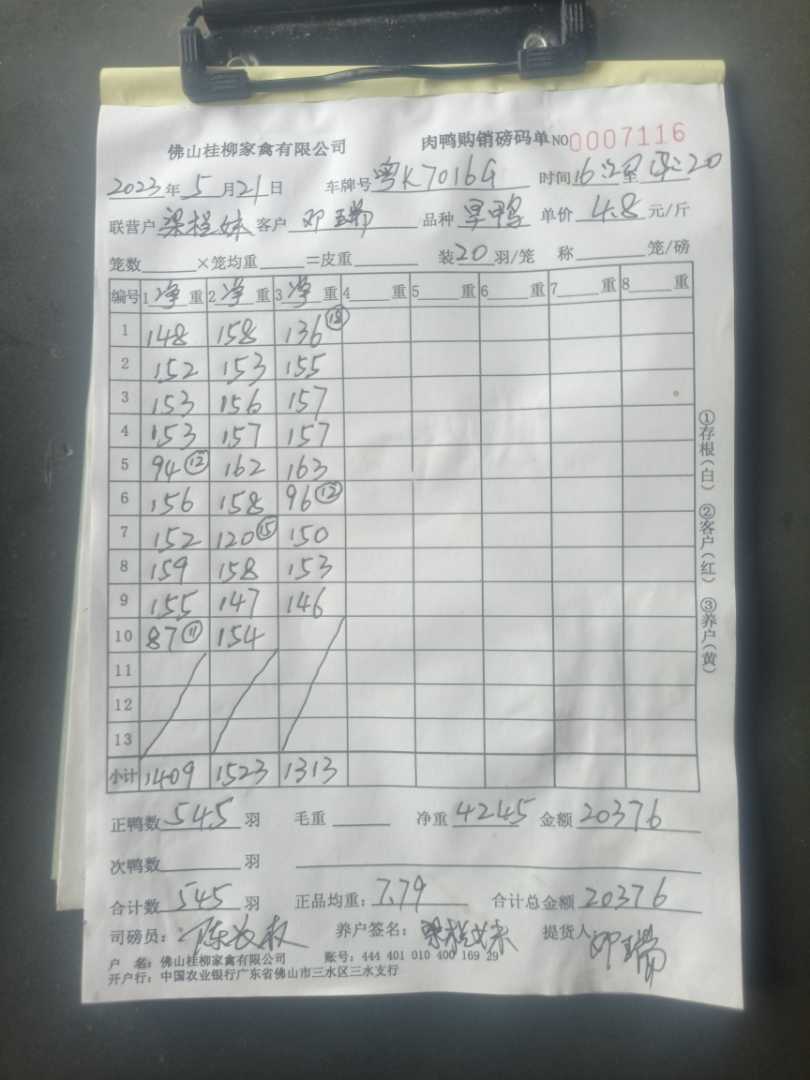 佛山桂柳家禽有限公司 肉鸭购销磅码单 NO 0007116
2023年5月21日 车牌号 粤K7016G 时间16:20至17:20
联营户 梁程妹 客户 邓瑞 品种 旱鸭 单价 4.8 元/斤
笼数 ×笼均重 =皮重 装20羽/笼 称 笼/磅
编号 1净重 2净重 3净重 4 重 5 重 6 重 7 重 8 重
1 148 158 136 ⑱
2 152 153 155
3 153 156 157
4 153 157 157
5 94 ⑫ 162 163
6 156 158 96 ⑫
7 152 120 ⑮ 150
8 159 158 153
9 155 147 146
10 87 ⑪ 154
11
12
13
小计 1409 1523 1313
正鸭数 545 羽 毛重 净重 4245 金额 20376
次鸭数 羽
合计数 545 羽 正品均重: 7.79 合计总金额 20376
司磅员: 养户签名: 梁程妹 提货人 邓瑞
户 名: 佛山桂柳家禽有限公司 账号: 444 401 010 400 169 29
开户行: 中国农业银行广东省佛山市三水区三水支行
①存根(白) ②客户(红) ③养户(黄)